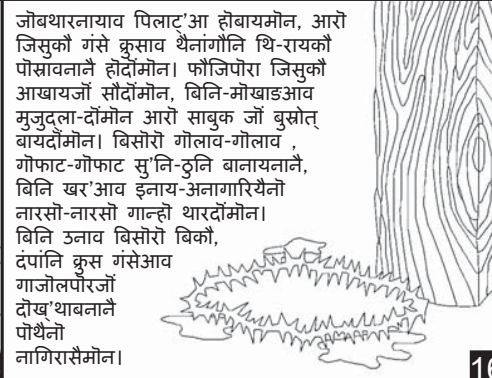 जोबथारनायाव पिलाट्'आ होबायमोन, आरो
जिसुकौ गंसे क्रुसाव थैनांगौनि थि-रायकौ
पोस्रावनानै होदोंमोन। फौजिपोरा जिसुकौ
आखायजों सौदोंमोन, बिनि-मोखाङआव
मुजुद्ला-दोंमोन आरो साबुक जों बुस्रोत्
बायदोंमोन। बिसोरो गोलाव-गोलाव ,
गोफाट-गोफाट सु'नि-ठुनि बानायनानै,
बिनि खर'आव इनाय-अनागारियैनो
नारसो-नारसो गान्हो थारदोंमोन।
बिनि उनाव बिसोरो बिकौ,
दंपांनि क्रुस गंसेआव
गाजोलपोरजों
दोख्'थाबनानै
पोथैनो
नागिरासैमोन।
16